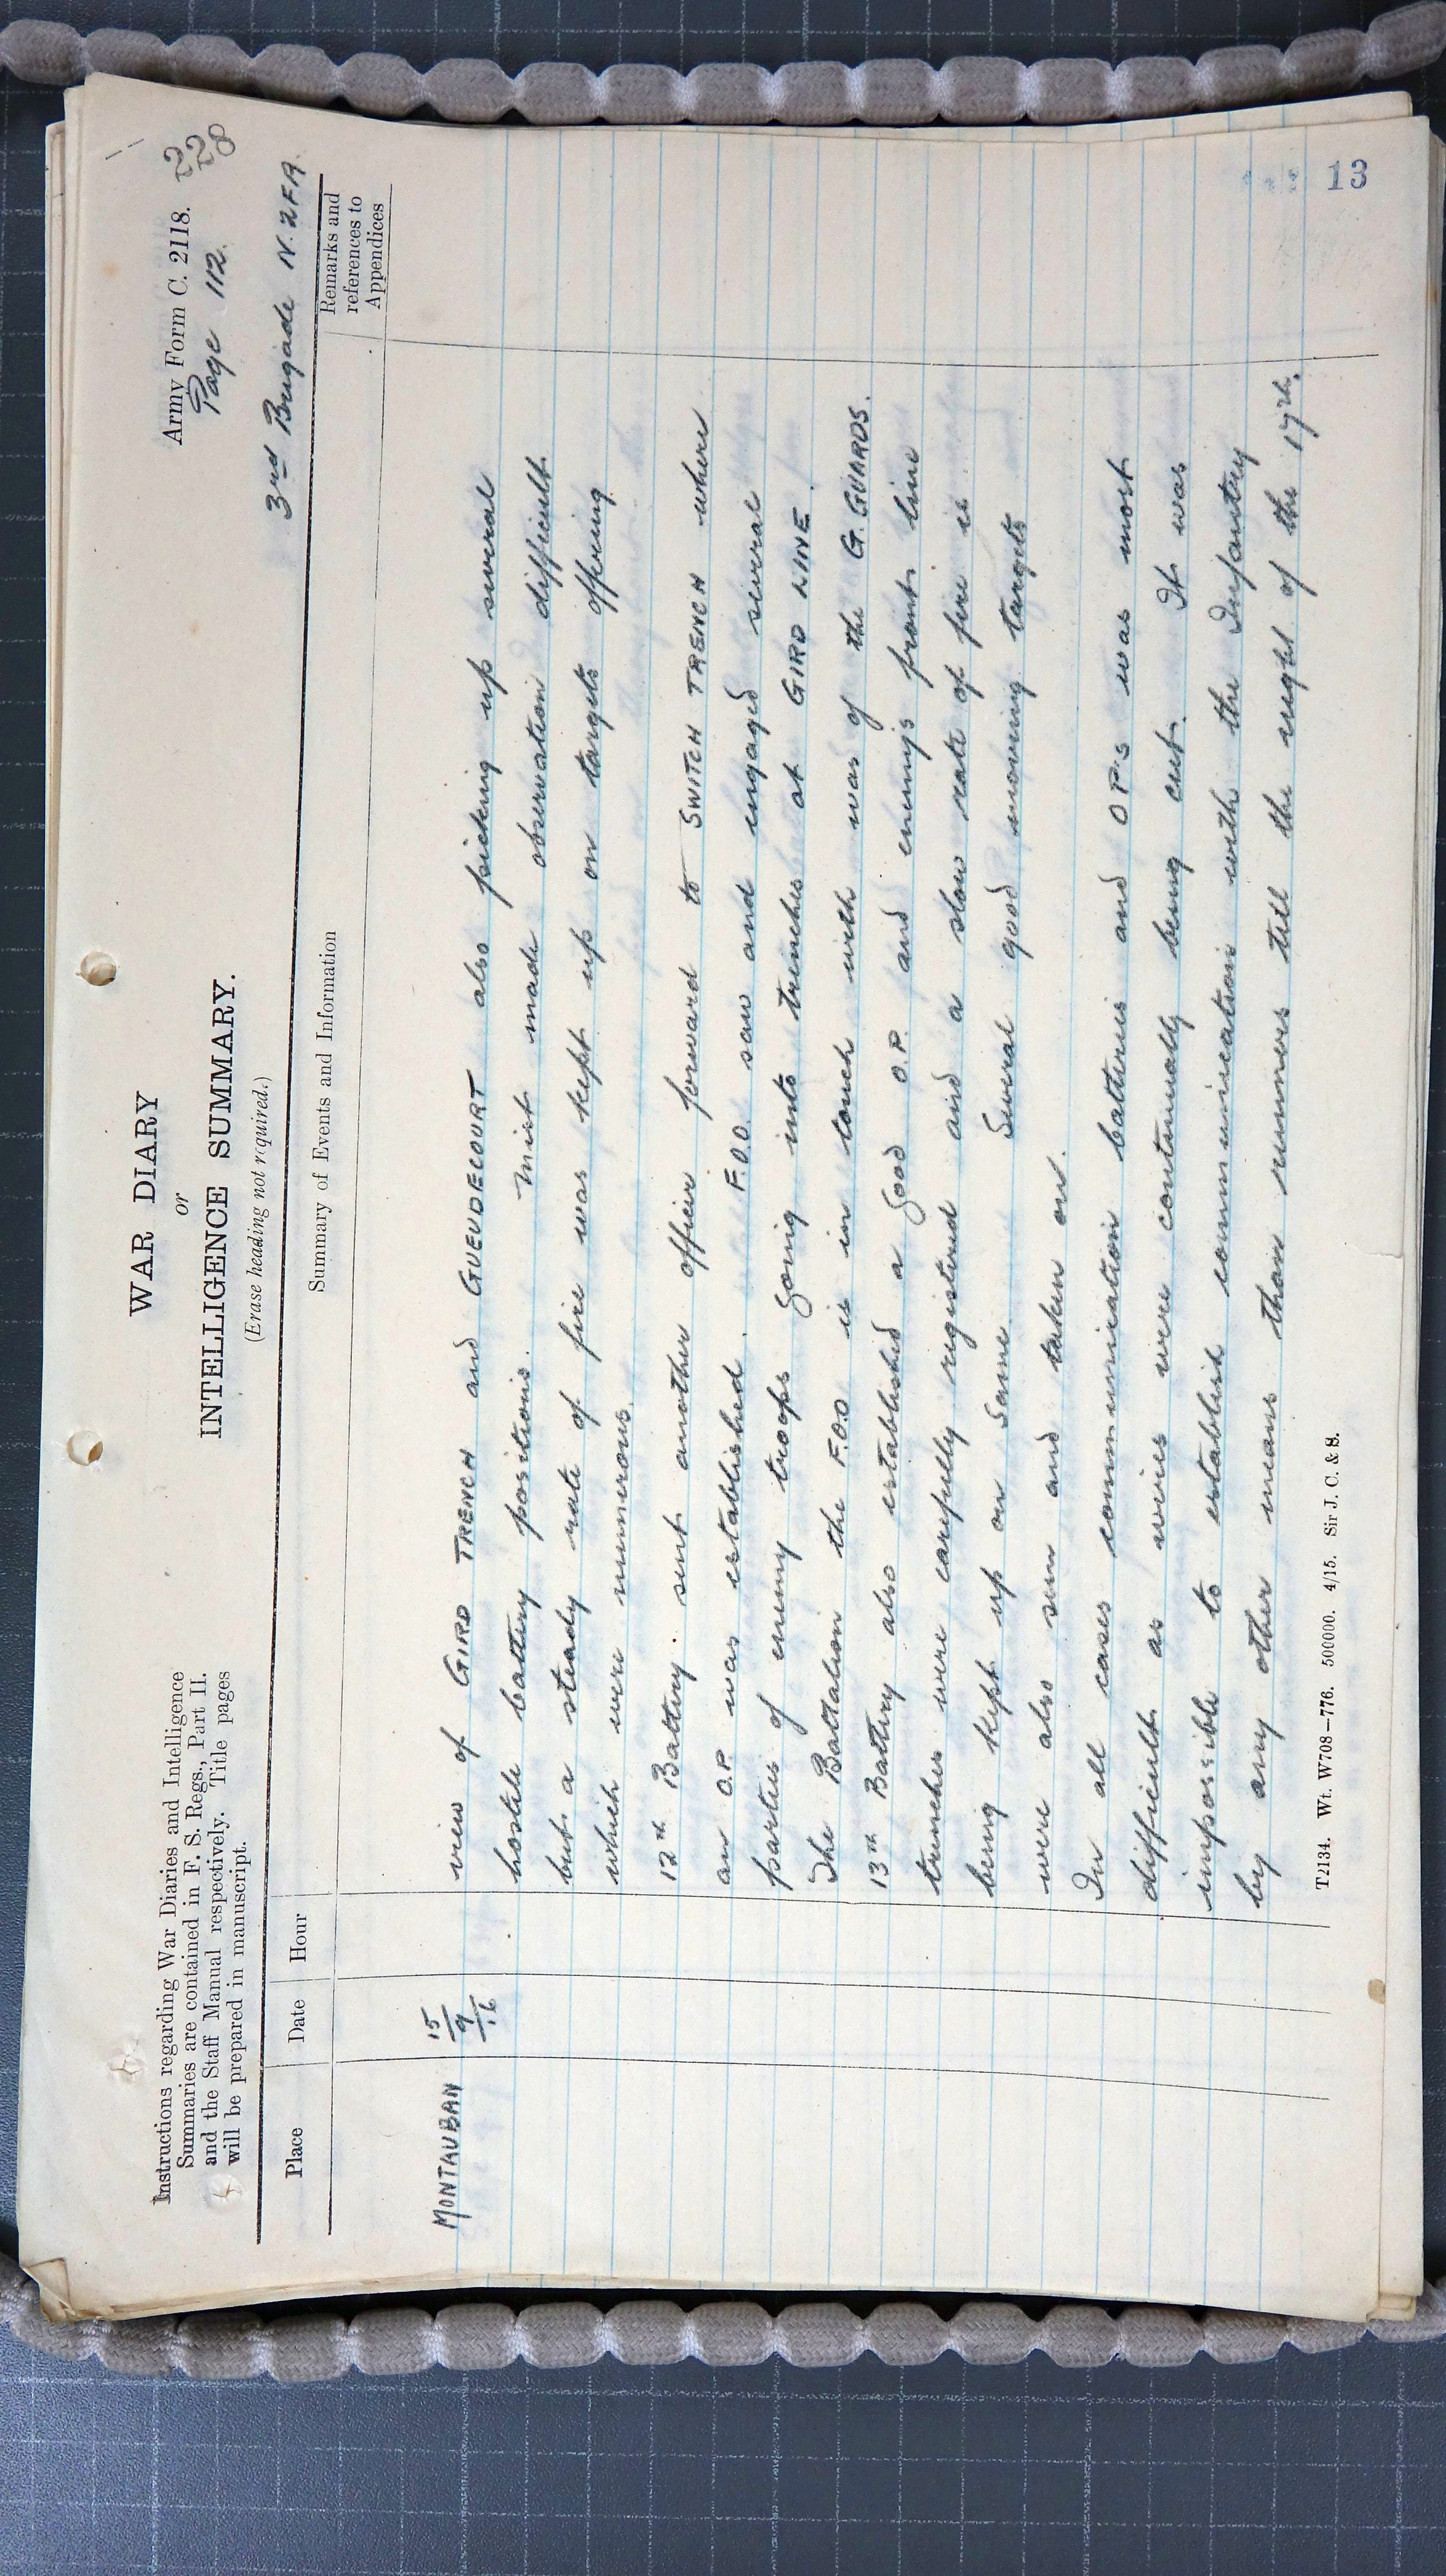 Army Form C. 2118.
228
Page 112.
WAR DIARY
or
INTELLIGENCE SUMMARY.
(Erase heading not required.)
Instructions regarding War Diaries and Intelligence
Summaries are contained in F. S. Regs., Part II.
and the Staff Manual respectively. Title pages
will be prepared in manuscript.
3rd Brigade N.Z.F.A.
Place
Date
Hour
Summary of Events and Information
Remarks and
references to
Appendices
MONTAUBAN
15
9
16
view of GIRD TRENCH and GUEUDECOURT also picking up several
hostile battery positions. Mist made observation difficult
but a steady rate of fire was kept up on targets offering
which were numerous.
12th Battery sent another officer forward to SWITCH TRENCH where
an O.P. was established. F.O.O. saw and engaged several
parties of enemy troops going into trenches at GIRD LINE.
The Battalion the F.O.O is in touch with was of the G. GUARDS.
13th Battery also established a good O.P. and enemy's front line
trenches were carefully registered and a slow rate of fire is
being kept up on same. Several good moving targets
were also seen and taken on.
In all cases communication batteries and O.P.s was most
difficult as wires were continually being cut. It was
impossible to establish communication with the Infantry
by any other means than runners till the night of the 17th.
T2134. Wt. W708—776. 500000. 4/15. Sir J. C. & S.
13